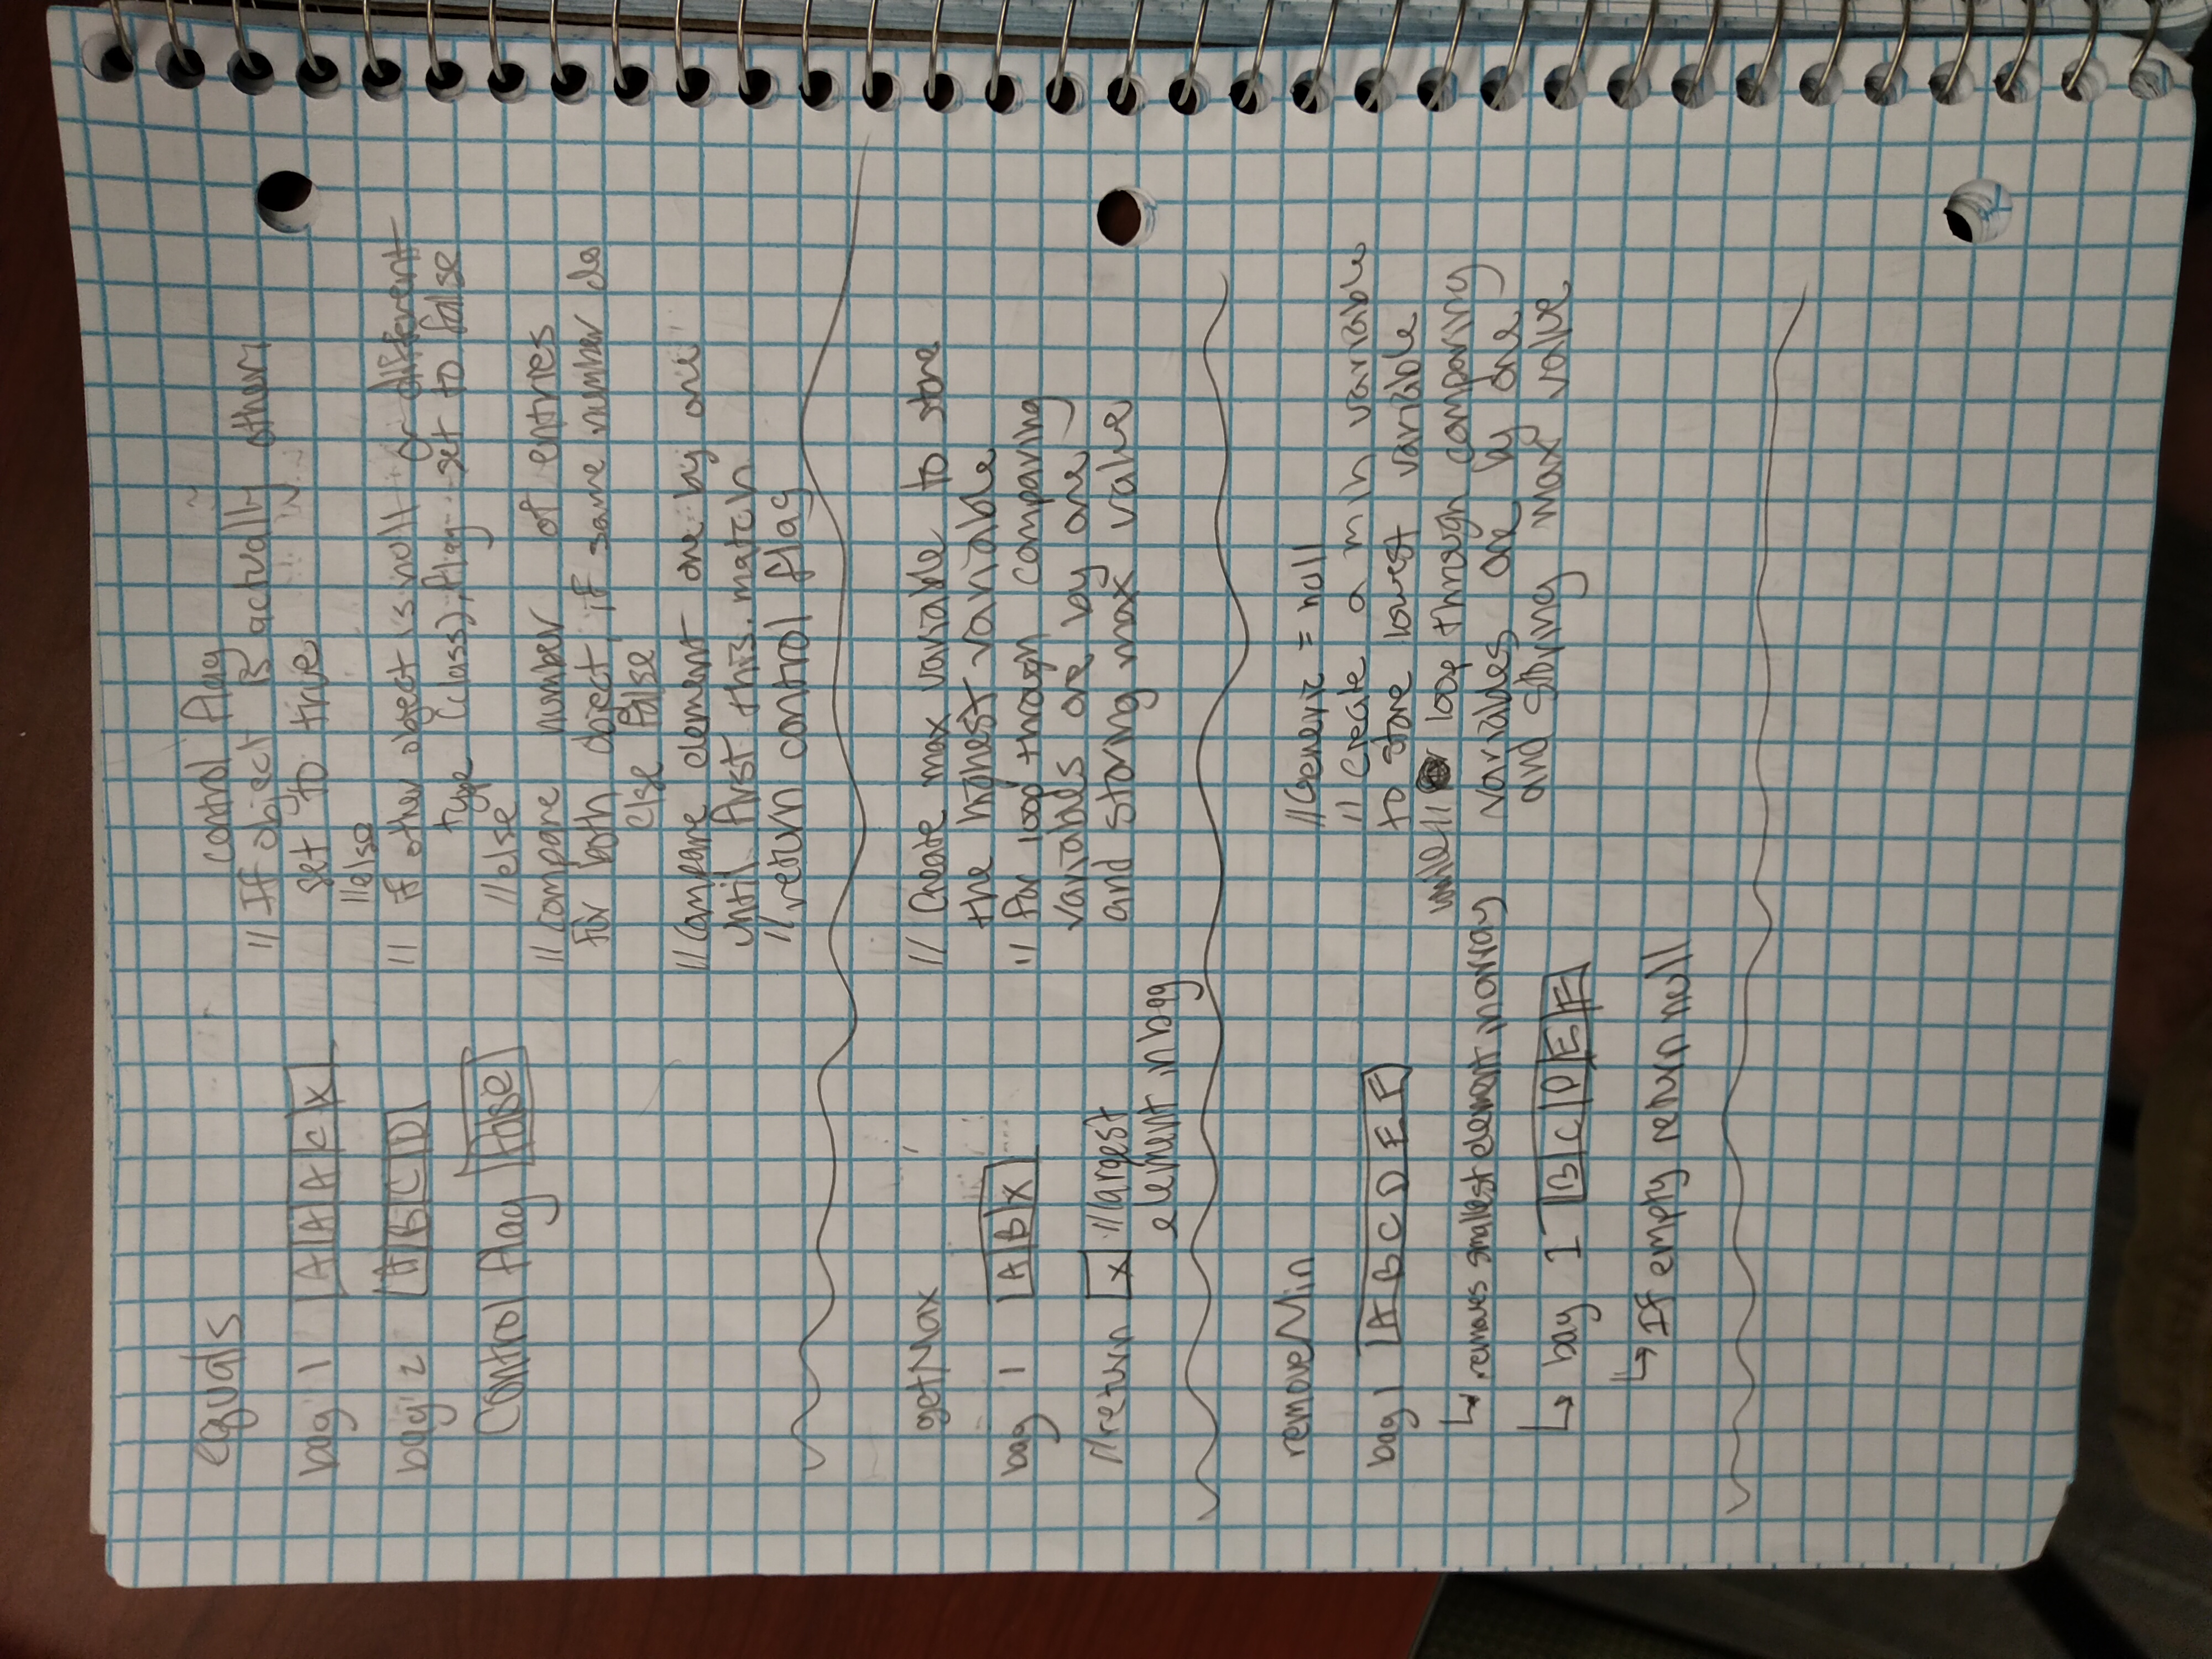 equals
bag 1 A A A C X
bag 2 A B C D
Control flag false
control flag
// If object is actually other,
set to true
//else
// if other object is null or different
type (class), flag set to false
//else
// compare number of entries
for both object, if same number do
else false
// Compare element one by one
until first this. match
// return control flag
getMax
bag 1 A B X
//return X //largest
element in bag
// Create max variable to store
the highest variable
// for loop through comparing
variables one by one
and storing max value
removeMin
bag 1 A B C D E F
↳ removes smallest element in array
↳ bag 1 B C D E F
↳ If empty return null
//Generic = null
// create a min variable
to store lowest variable
while // loop through comparing
variables one by one
and storing max value